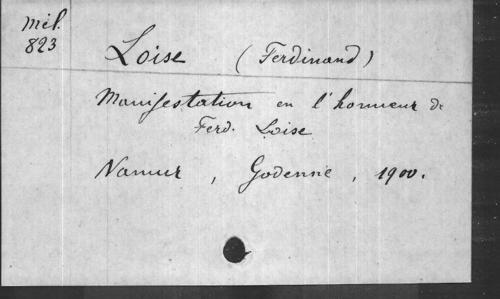 Mél.
823
Loise (Ferdinand)
Manifestation en l'honneur de
Ferd. Loise
Namur, Godenne, 1900.